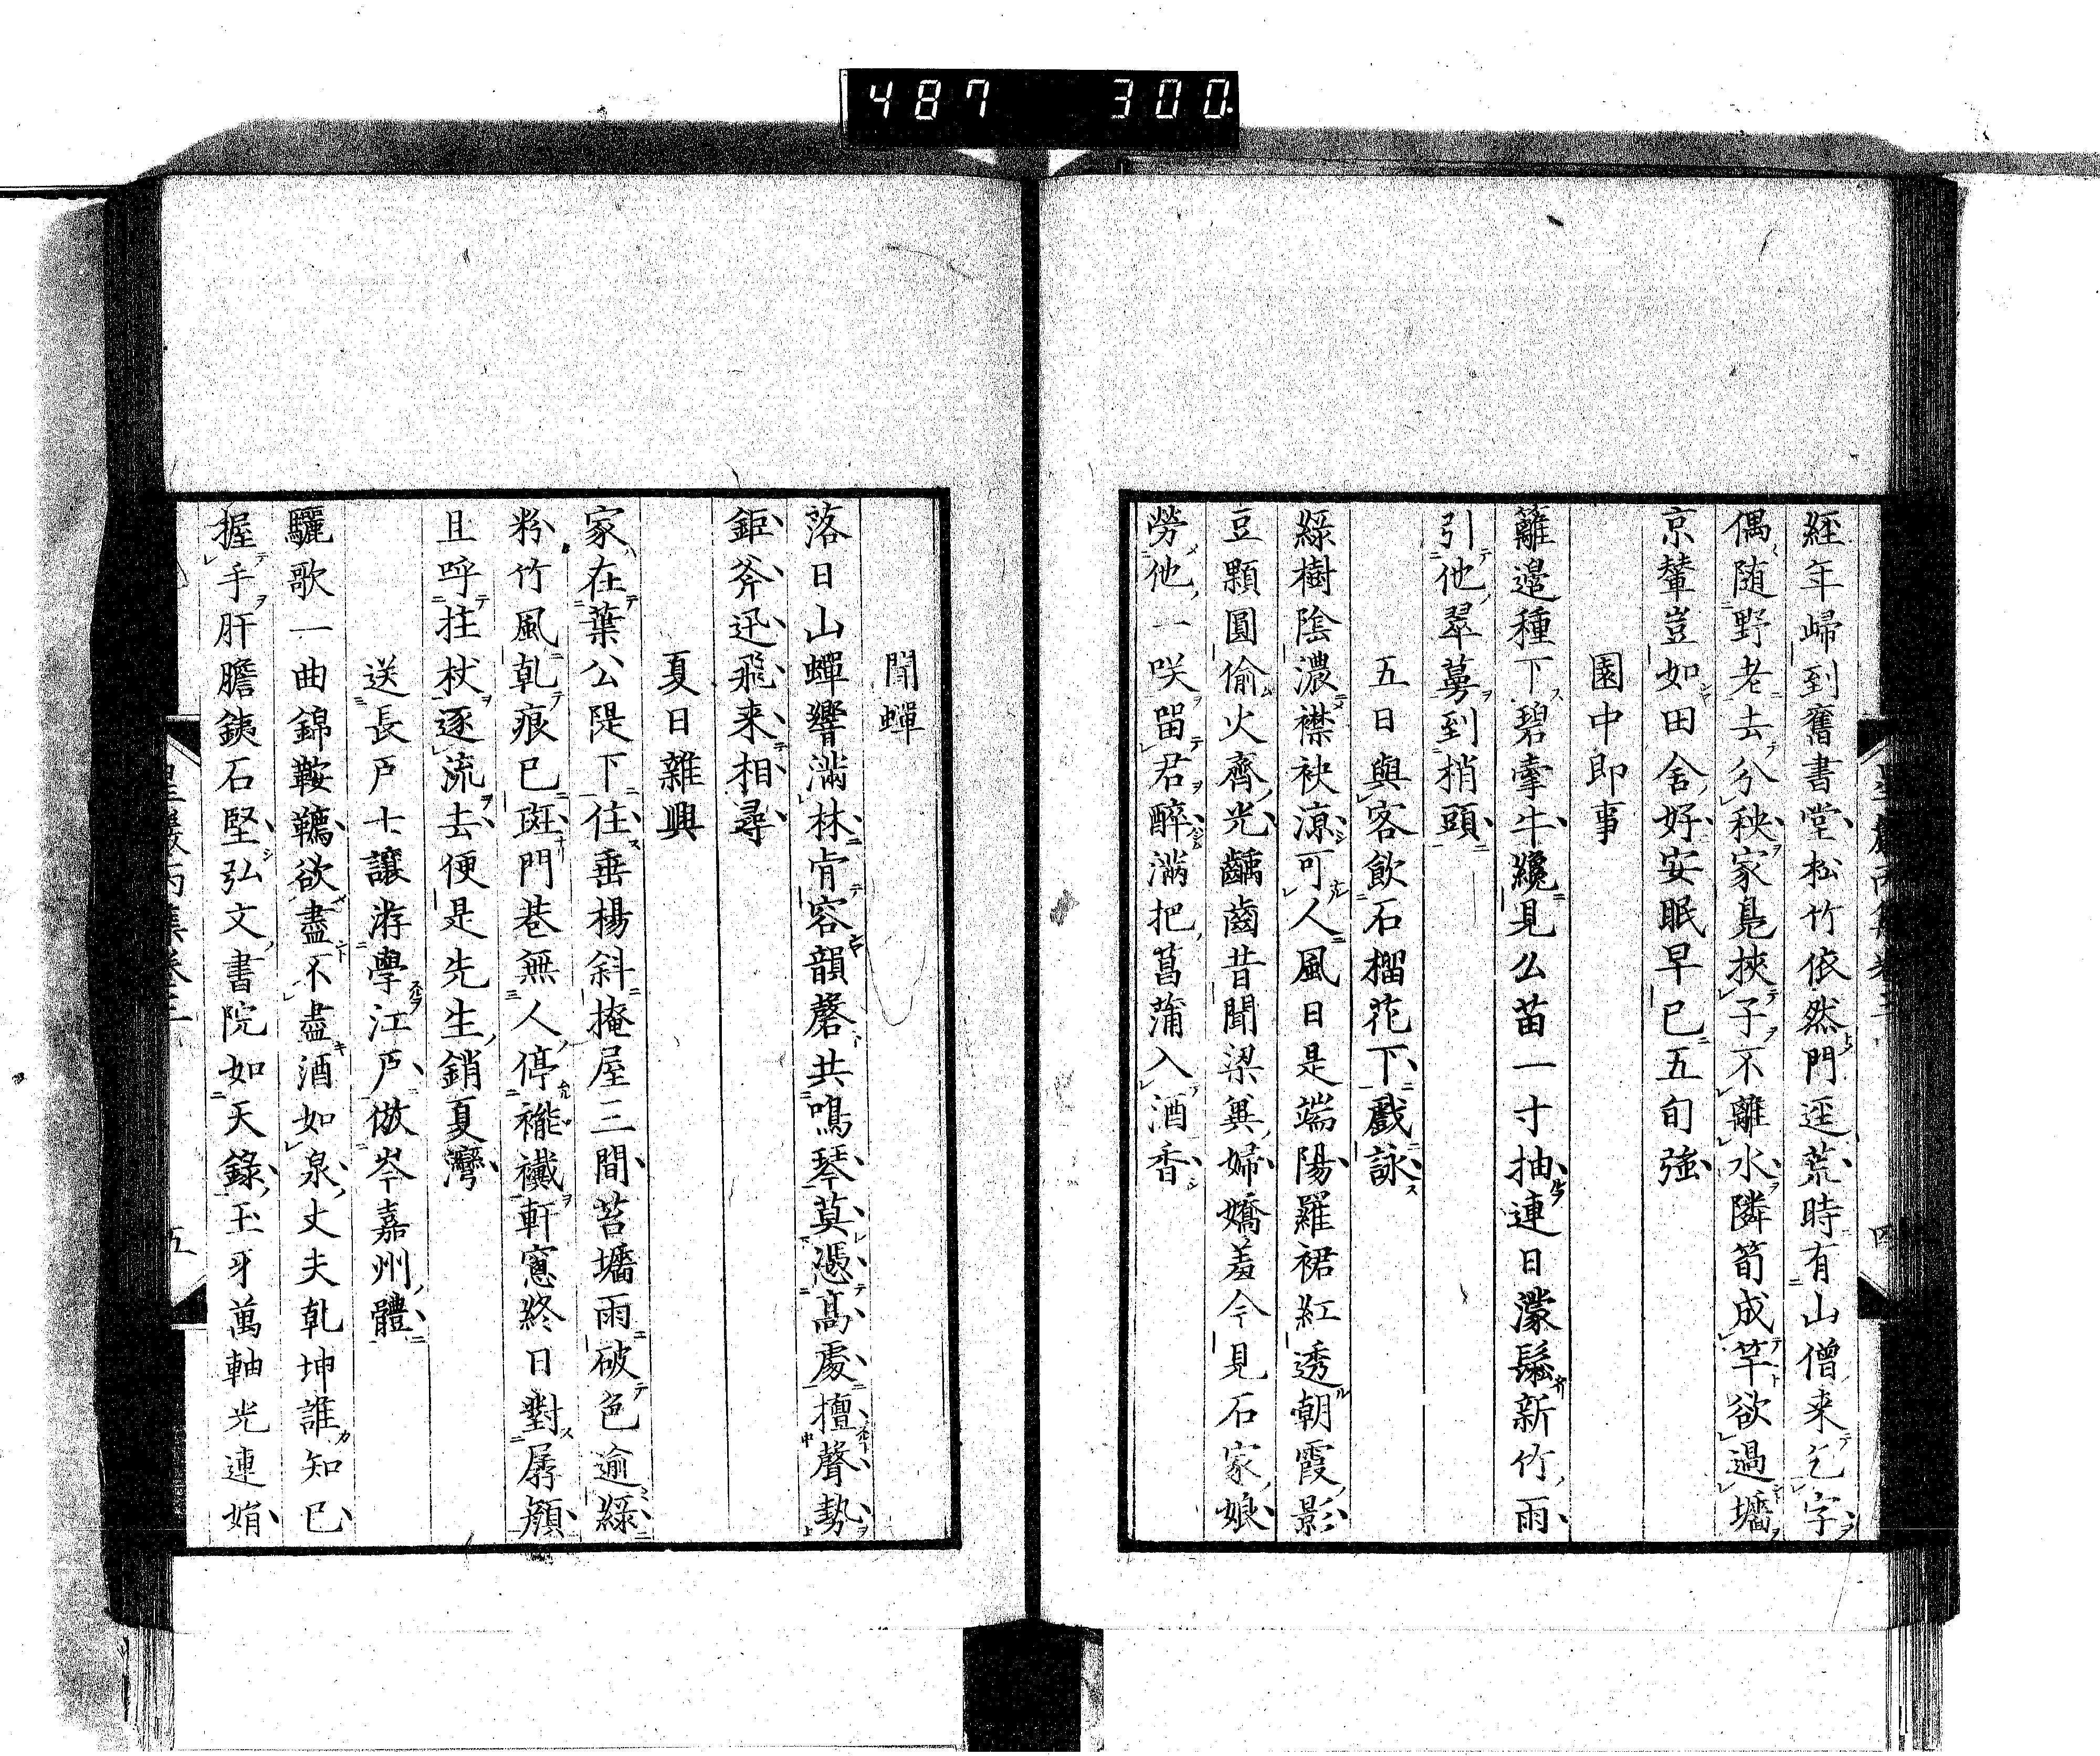 487 300
經年歸到舊書堂松竹依然門逕荒時有山僧来乞字
偶随野老去分秧家鳧挾子不離水隣筍成竿欲過墻
京輦豈如田舍好安眠早已五旬強
園中即事
籬邉種下碧牽牛纔見么苗一寸抽連日濛鬆新竹雨
引他翠蔓到梢頭
五日與客飲石榴花下戲詠
綠樹陰濃襟袂凉可人風日是端陽羅裙紅透朝霞影
豆顆圓偷火齊光齲齒昔聞梁冀婦嬌羞今見石家娘
勞他一咲畱君醉滿把菖蒲入酒香
四
聞蟬
落日山蟬響滿林肯容韻磬共鳴琴莫憑高處擅聲勢
鉅斧迅飛来相尋
夏日雜興
家在葉公隄下住垂楊斜掩屋三間苔墻雨破色逾綠
粉竹風乹痕已斑門巷無人停襶軒窓終日對孱顏
且呼拄杖逐流去便是先生銷夏灣
送長戸士讓游學江戸倣岑嘉州體
驪歌一曲錦鞍韉欲盡不盡酒如泉丈夫乹坤誰知已
握手肝膽鐵石堅弘文書院如天錄玉牙萬軸光連娟
星巖丙集卷三
五